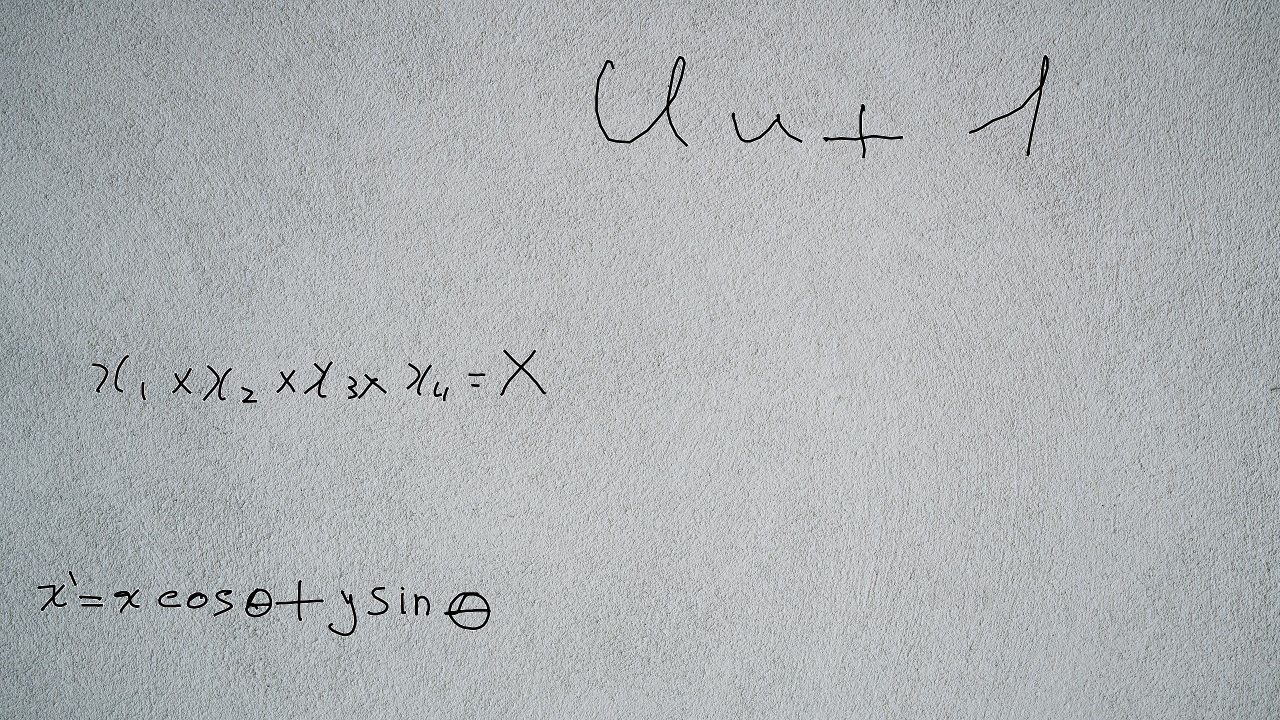 U u + 1
x₁ × x₂ × x₃ × x₄ = X
x' = x cos θ + y sin θ